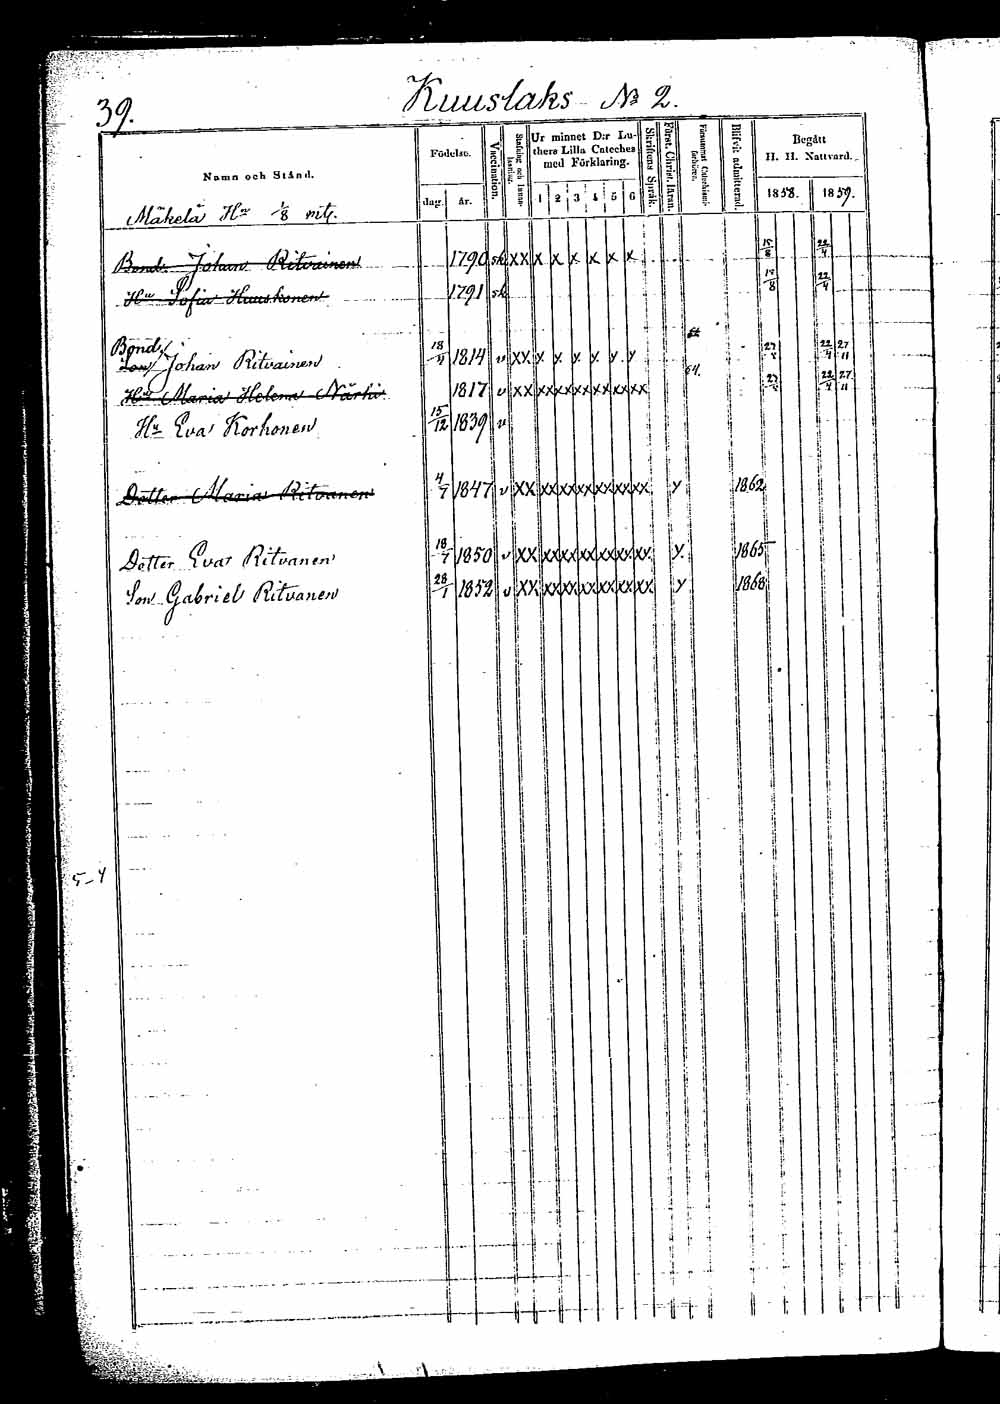 39.
Kuuslaks № 2.
Namn och Stånd.
Födelse.
dag.
år.
Vaccination.
Stafning och Innanläsning.
Ur minnet D:r Luthers Lilla Cateches med Förklaring.
1 2 3 4 5 6
Skriftens Språk.
Först. Christ. läran.
Försummat Catechismiförhören.
Blifvit admitterad.
Begått
H. H. Nattvard.
1858. 1859.
Mäkelä Hn 1/8 mtl.
Bond. Johan Ritvainen 1790 sk XX X X X X X X 15/8 22/4
Hu Sofia Huuskonen 1791 sk 15/8 22/4
Bond
Son Johan Ritvainen 18/4 1814 v XX X X X X X X 22/4 27/11
Hu Maria Helena Närhi 1817 v XX XX XX XX XX XX XX 64. 22/4 27/11
Hu Eva Korhonen 15/12 1839 v
Dotter Maria Ritvanen 4/7 1847 v XX XX XX XX XX XX XX y 1862
Dotter Eva Ritvanen 18/7 1850 v XX XX XX XX XX XX XX y 1865
Son Gabriel Ritvanen 28/1 1852 v XX XX XX XX XX XX XX y 1868
5-4